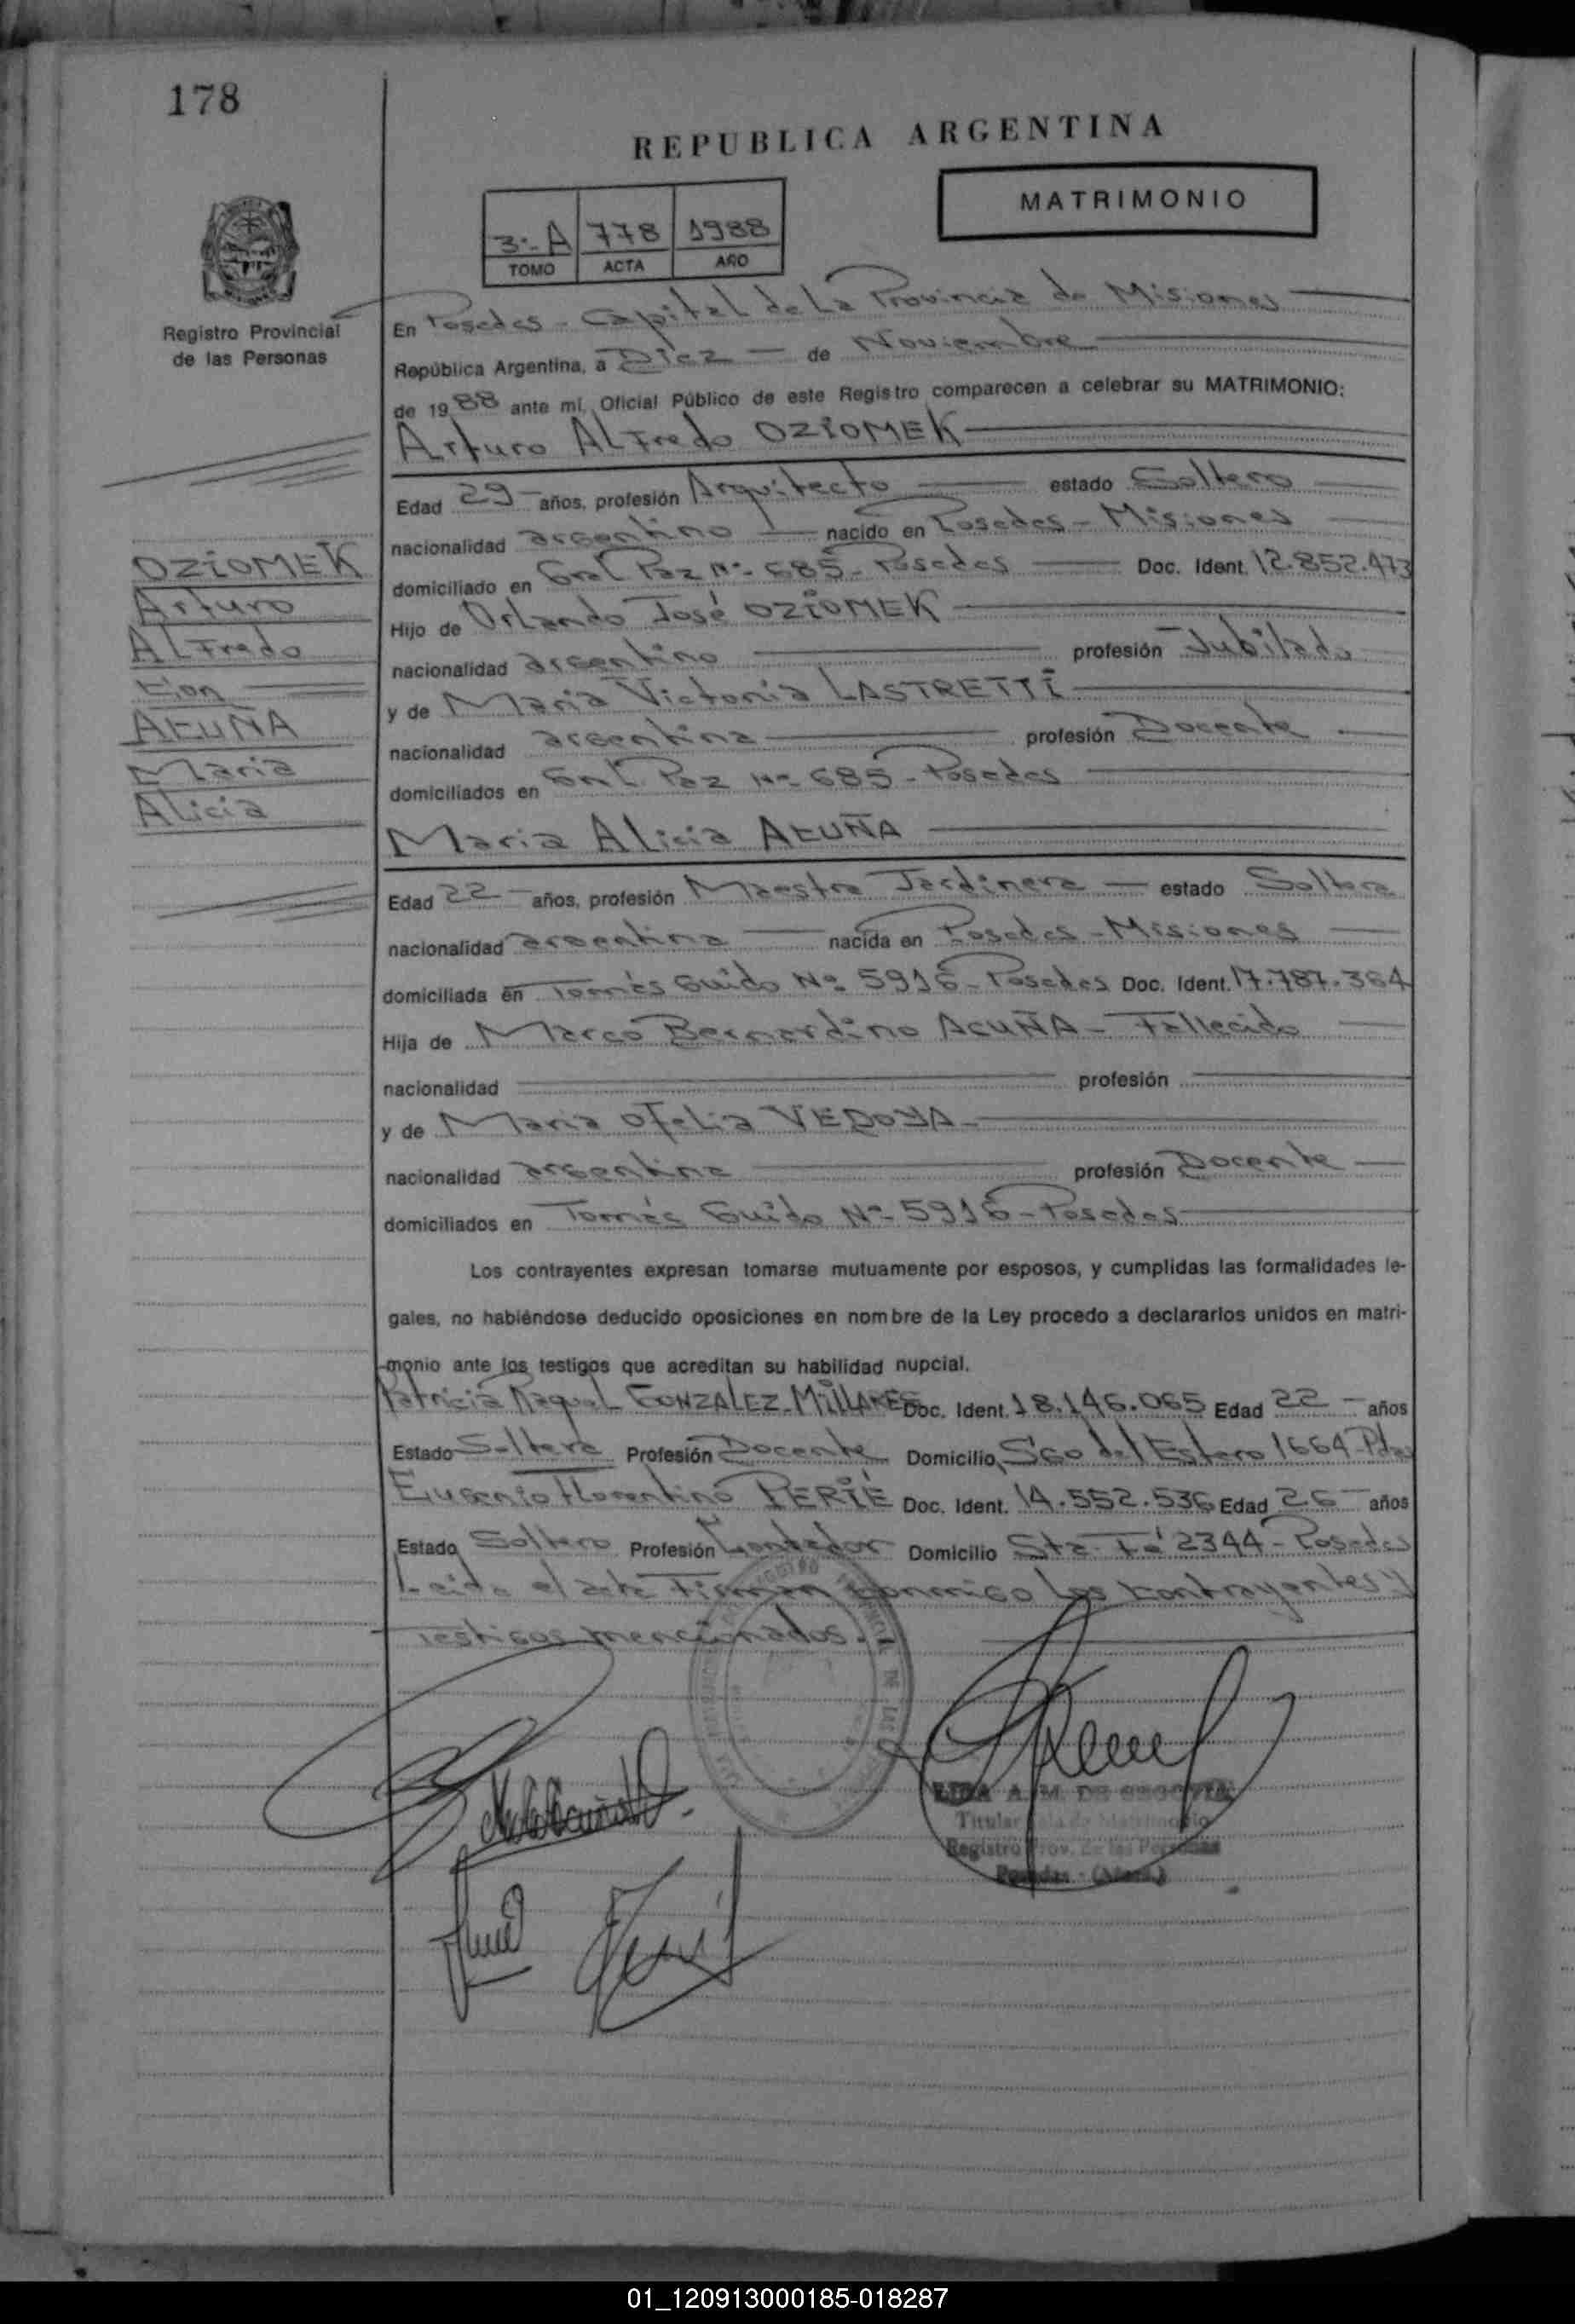 178
REPUBLICA ARGENTINA
MATRIMONIO
3º- A 778 1988
TOMO ACTA AÑO
Registro Provincial
de las Personas
En Posadas - Capital de La Provincia de Misiones
República Argentina, a Diez - de Noviembre
de 1988 ante mí, Oficial Público de este Registro comparecen a celebrar su MATRIMONIO:
Arturo ALFredo OZIOMEK
Edad 29 - años, profesión Arquitecto estado Soltero
nacionalidad argentino nacido en Posadas - Misiones
domiciliado en Gral Paz Nº- 685 - Posadas Doc. Ident. 12.852.473
Hijo de Orlando José OZIOMEK
nacionalidad argentino profesión Jubilado
y de Maria Victoria LASTRETTI
nacionalidad argentina profesión Docente
domiciliados en Gral Paz Nº- 685 - Posadas
Maria Alicia ACUÑA
OZIOMEK
Arturo
ALFredo
Con
ACUÑA
Maria
Alicia
Edad 22 - años, profesión Maestra Jardinera - estado Soltera
nacionalidad argentina nacida en Posadas - Misiones
domiciliada en Tomás Guido Nº- 5916 - Posadas Doc. Ident. 17.787.364
Hija de Marco Bernardino ACUÑA - Fallecido
nacionalidad profesión
y de Maria Ofelia VEDOYA -
nacionalidad argentina profesión Docente
domiciliados en Tomás Guido Nº- 5916 - Posadas
Los contrayentes expresan tomarse mutuamente por esposos, y cumplidas las formalidades le-
gales, no habiéndose deducido oposiciones en nombre de la Ley procedo a declararlos unidos en matri-
monio ante los testigos que acreditan su habilidad nupcial.
Patricia Raquel GONZALEZ MiLLARES Doc. Ident. 18.146.065 Edad 22 - años
Estado Soltera Profesión Docente Domicilio Sgo del Estero 1664 - Pdas
Eugenio Florentino PERIÉ Doc. Ident. 14.552.536 Edad 26 - años
Estado Soltero Profesión Contador Domicilio Sta Fé 2344 - Posadas
Leida el acta Firman conmigo Los contrayentes y
Testigos mencionados.
LIDA A. M. DE SEGOVIA
Titular Sala de Matrimonio
Registro Prov. De las Personas
Posadas - (Mnes.)
01_120913000185-018287